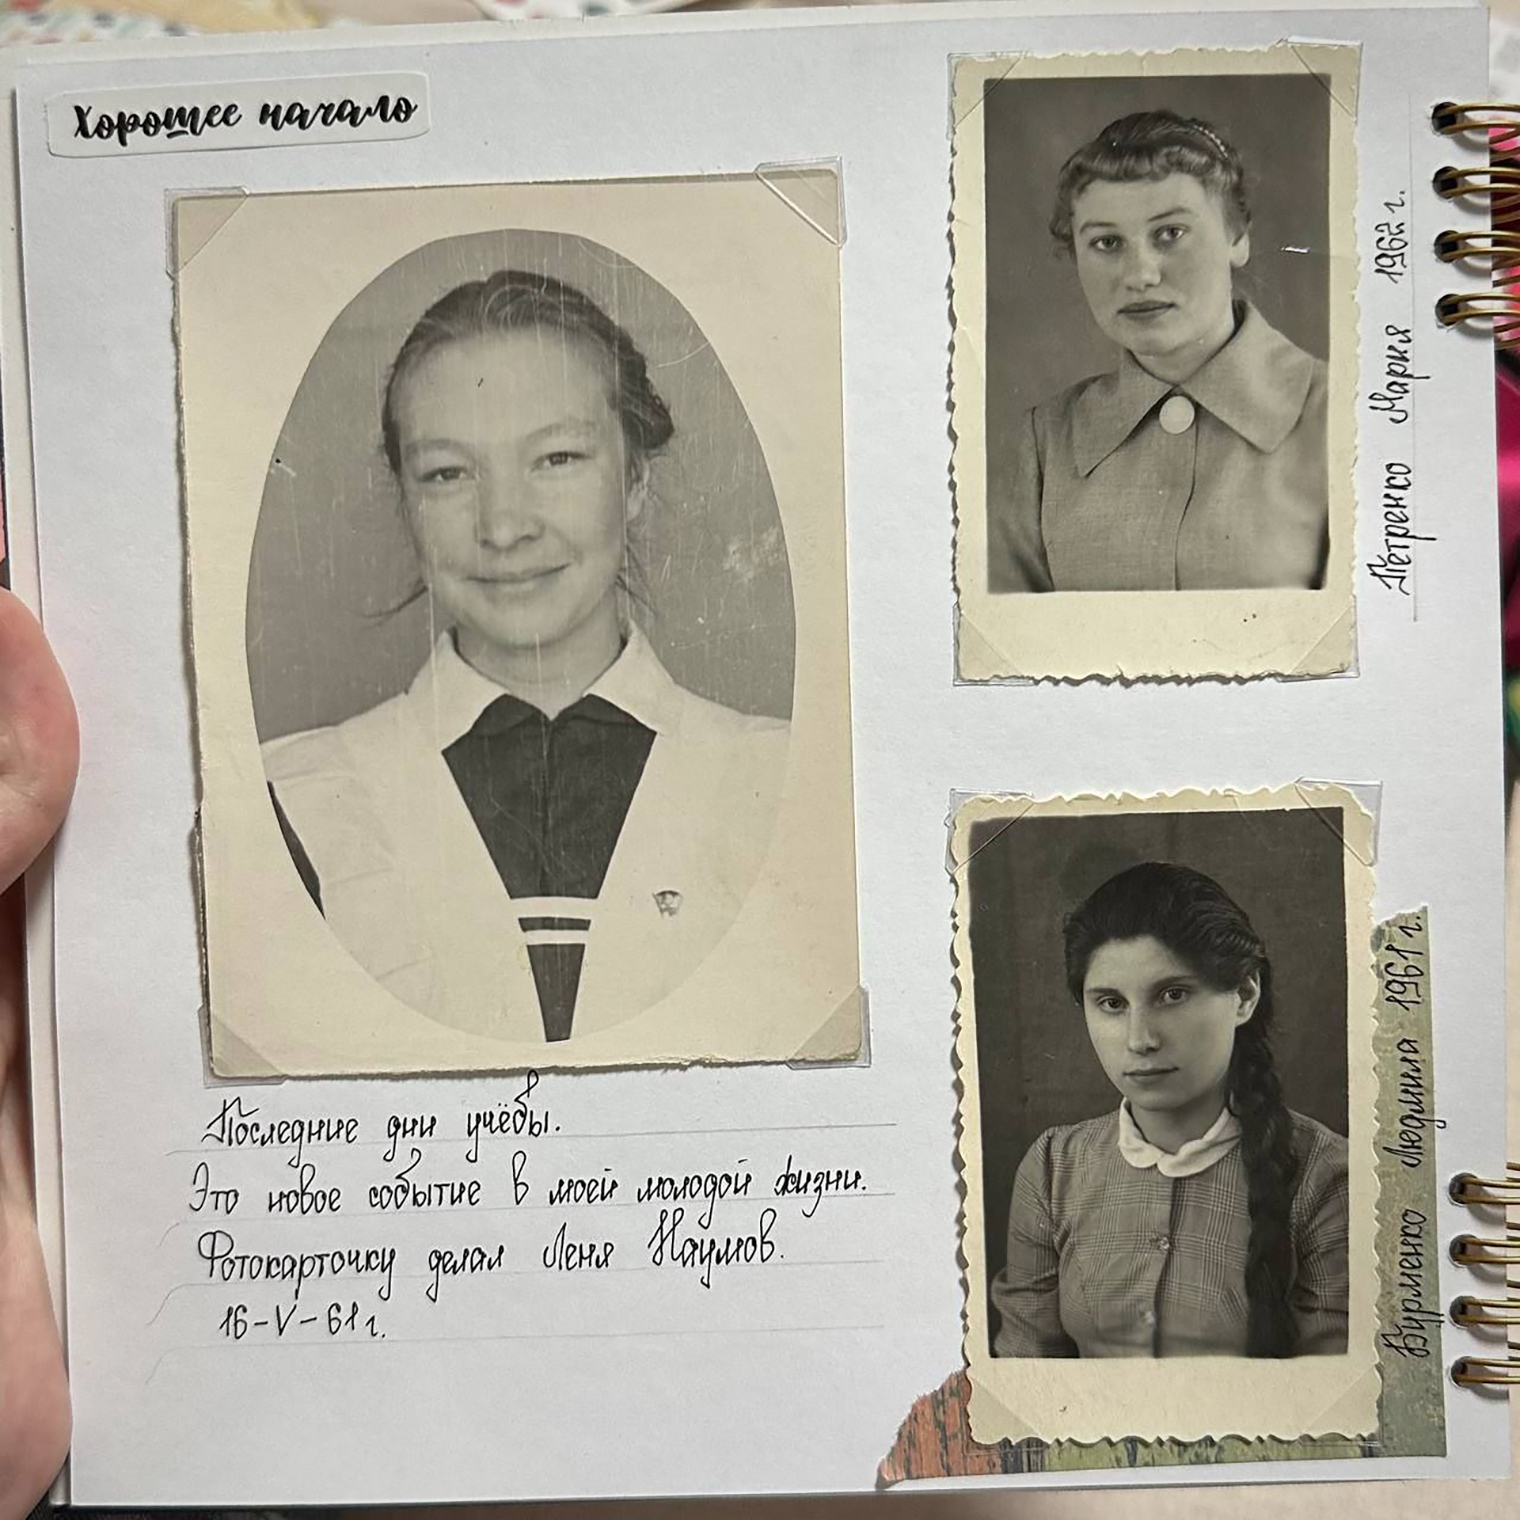 Хорошее начало
Последние дни учёбы.
Это новое событие в моей молодой жизни.
Фотокарточку делал Леня Наумов.
16-V-61 г.
Петренко Мария 1962 г.
Бурменко Людмила 1961 г.